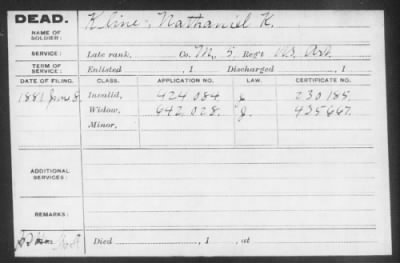 DEAD. Kline, Nathaniel K.
NAME OF SOLDIER:
SERVICE: Late rank, Co. M, 5 Reg't Art.
TERM OF SERVICE: Enlisted , 1 Discharged , 1
DATE OF FILING. CLASS. APPLICATION NO. LAW. CERTIFICATE NO.
1881 8 Invalid, 424.084. 230.185.
Widow, 642.028. 435.667.
Minor,
ADDITIONAL SERVICES:
REMARKS:
Died , 1 , at